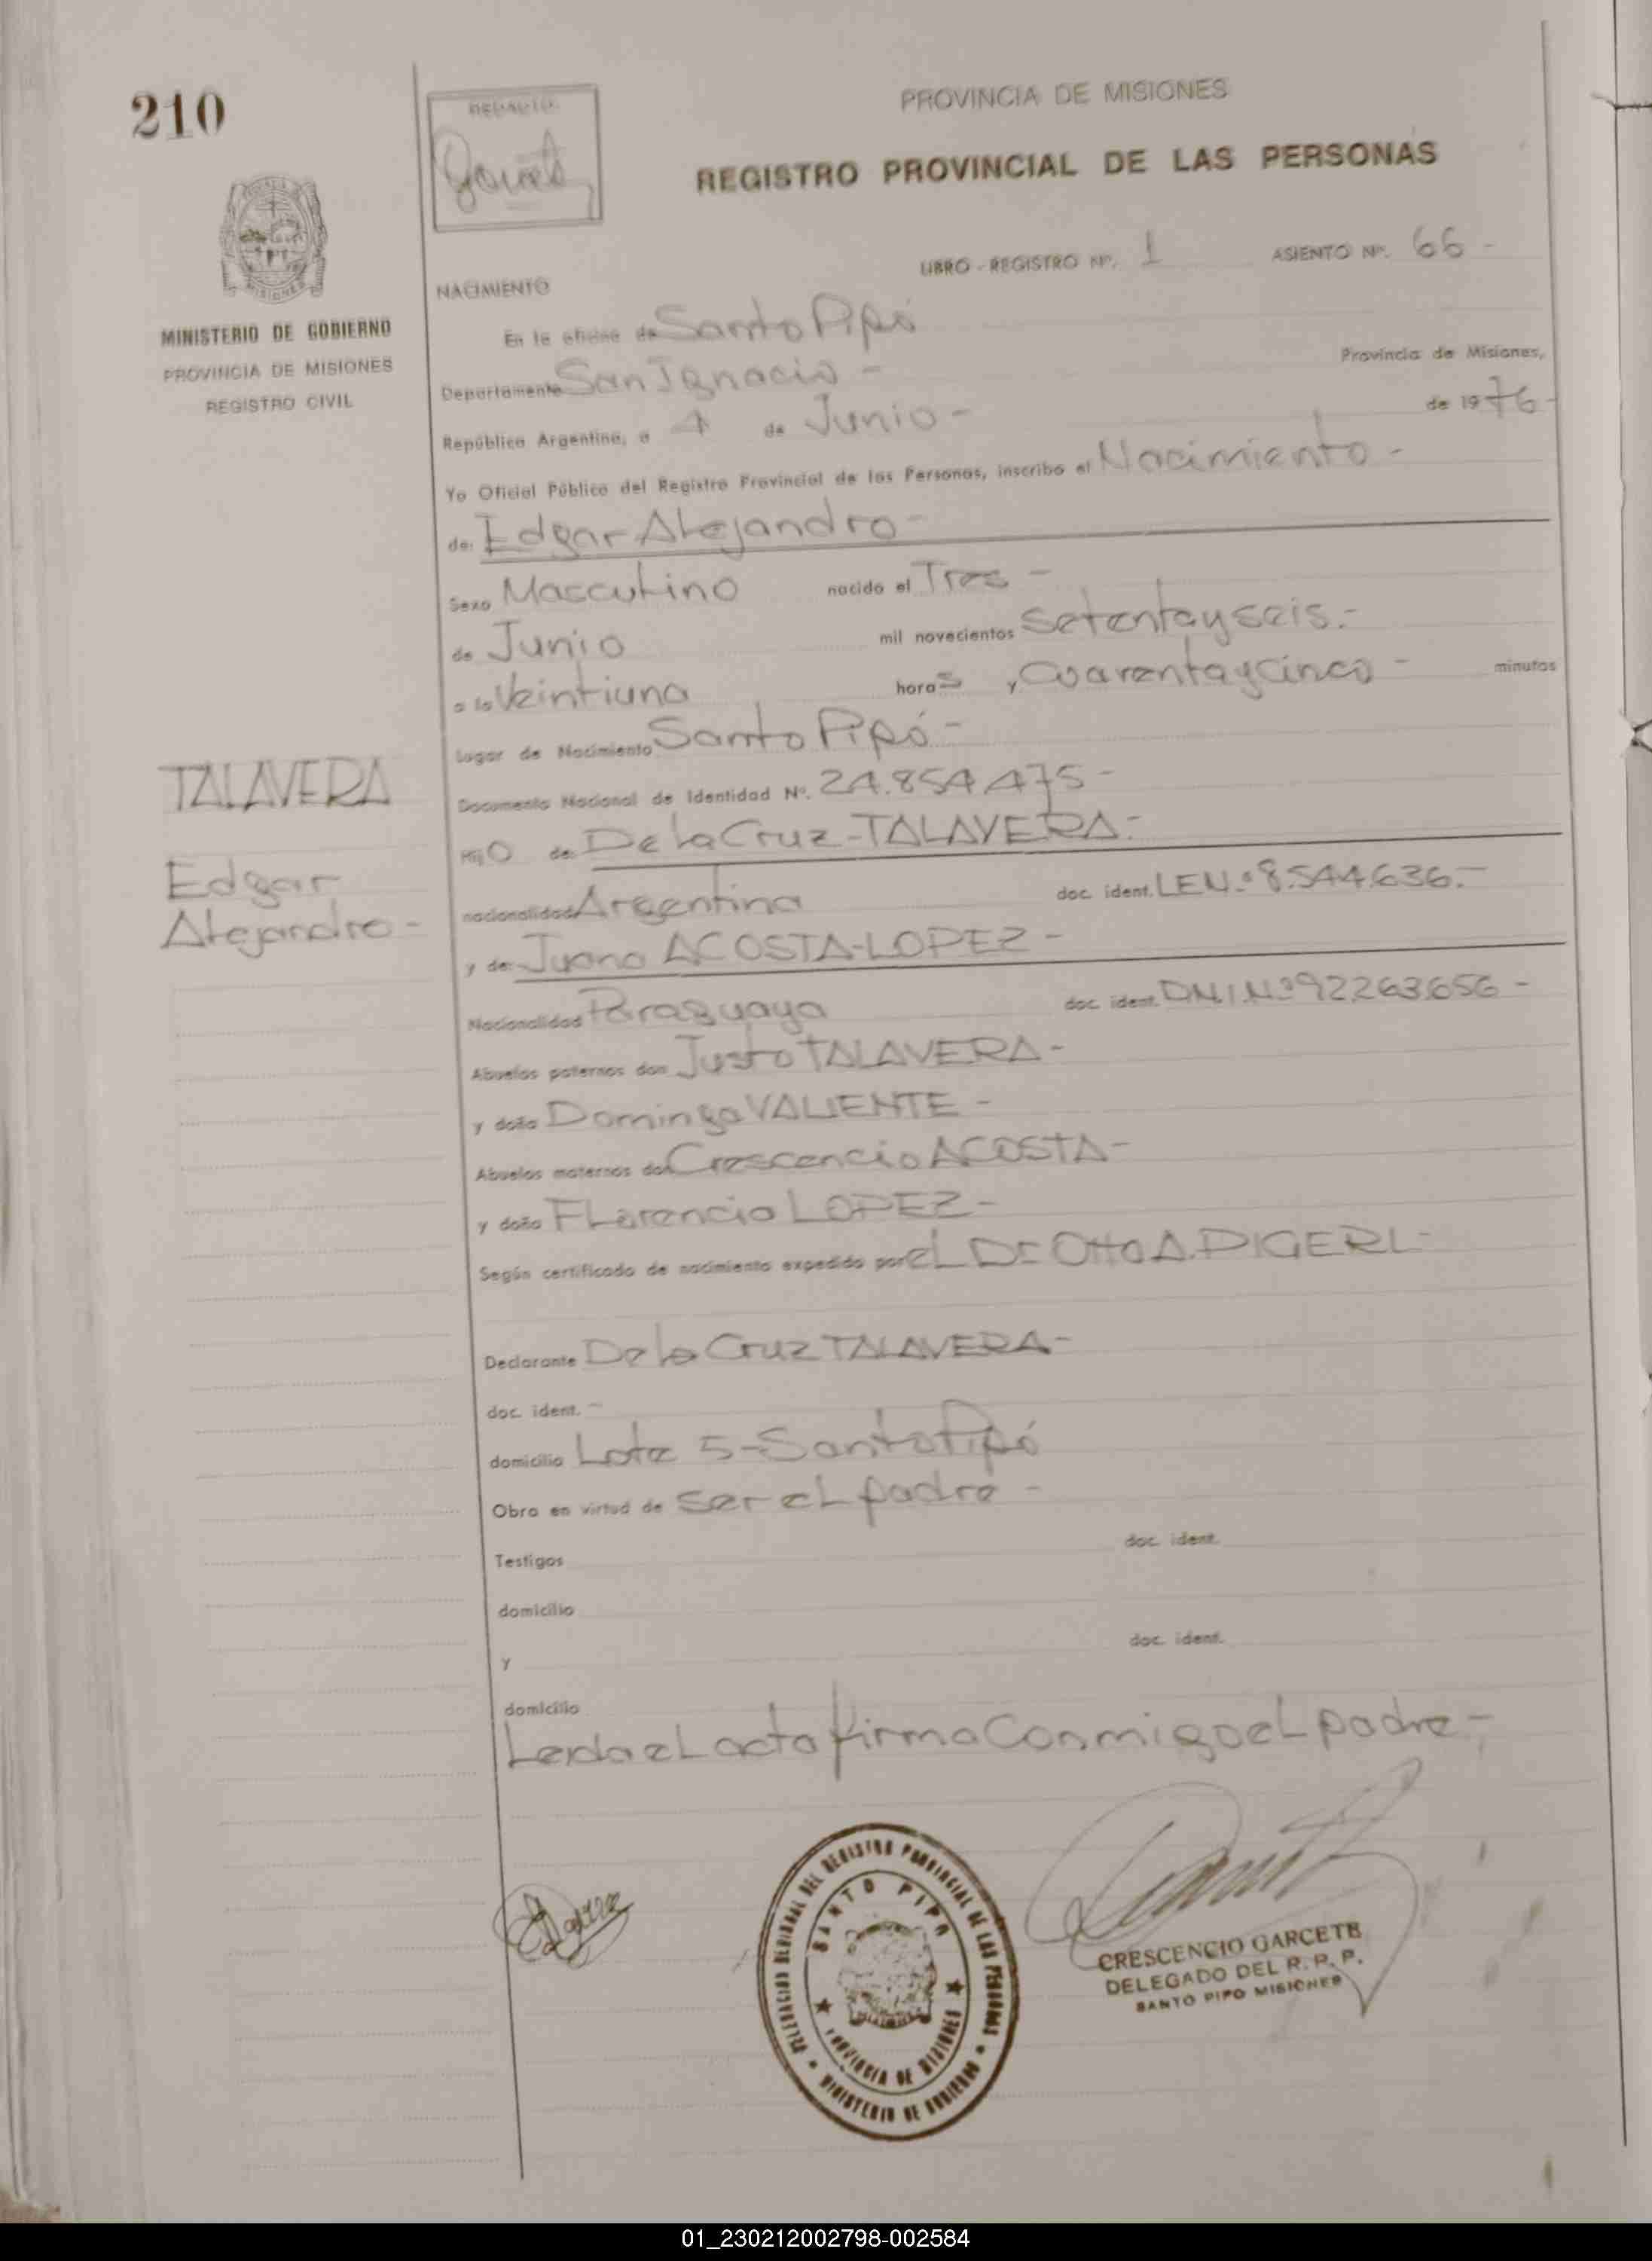 210
REDACTO
PROVINCIA DE MISIONES
REGISTRO PROVINCIAL DE LAS PERSONAS
LIBRO - REGISTRO Nº. 1 ASIENTO Nº. 66 -
MINISTERIO DE GOBIERNO
PROVINCIA DE MISIONES
REGISTRO CIVIL
NACIMIENTO
En la oficina de Santo Pipó
Departamento San Ignacio - Provincia de Misiones,
República Argentina, a 4 de Junio - de 1976 -
Yo Oficial Público del Registro Provincial de las Personas, inscribo el Nacimiento -
de: Edgar Alejandro -
Sexo Masculino nacido el Tres -
de Junio mil novecientos Setentayseis.-
a la Veintiuna horas y Cuarentaycinco - minutos
lugar de Nacimiento Santo Pipó -
Documento Nacional de Identidad Nº. 24.854.475 -
TALAVERA
Edgar
Alejandro -
Hijo de: De la Cruz - TALAVERA.-
nacionalidad Argentina doc. ident. L.E.N.º 8.544.636.-
y de: Juana ACOSTA-LOPEZ -
Nacionalidad Paraguaya doc. ident. D.N.I.N.º 92.263.656 -
Abuelos paternos don Justo TALAVERA -
y doña Dominga VALIENTE -
Abuelos maternos don Crescencio ACOSTA -
y doña Florencia LOPEZ -
Según certificado de nacimiento expedido por el Dr Otto A. DIGERL -
Declarante De la Cruz TALAVERA -
doc. ident. -
domicilio Lote 5 - Santo Pipó
Obra en virtud de ser el padre -
Testigos doc. ident.
domicilio
y doc. ident.
domicilio
Leida el acta firma Conmigo el padre -
DELEGACION REGIONAL DEL REGISTRO PROVINCIAL DE LAS PERSONAS
SANTO PIPO
PROVINCIA DE MISIONES
MINISTERIO DE GOBIERNO
CRESCENCIO GARCETE
DELEGADO DEL R. P. P.
SANTO PIPO MISIONES
01_230212002798-002584